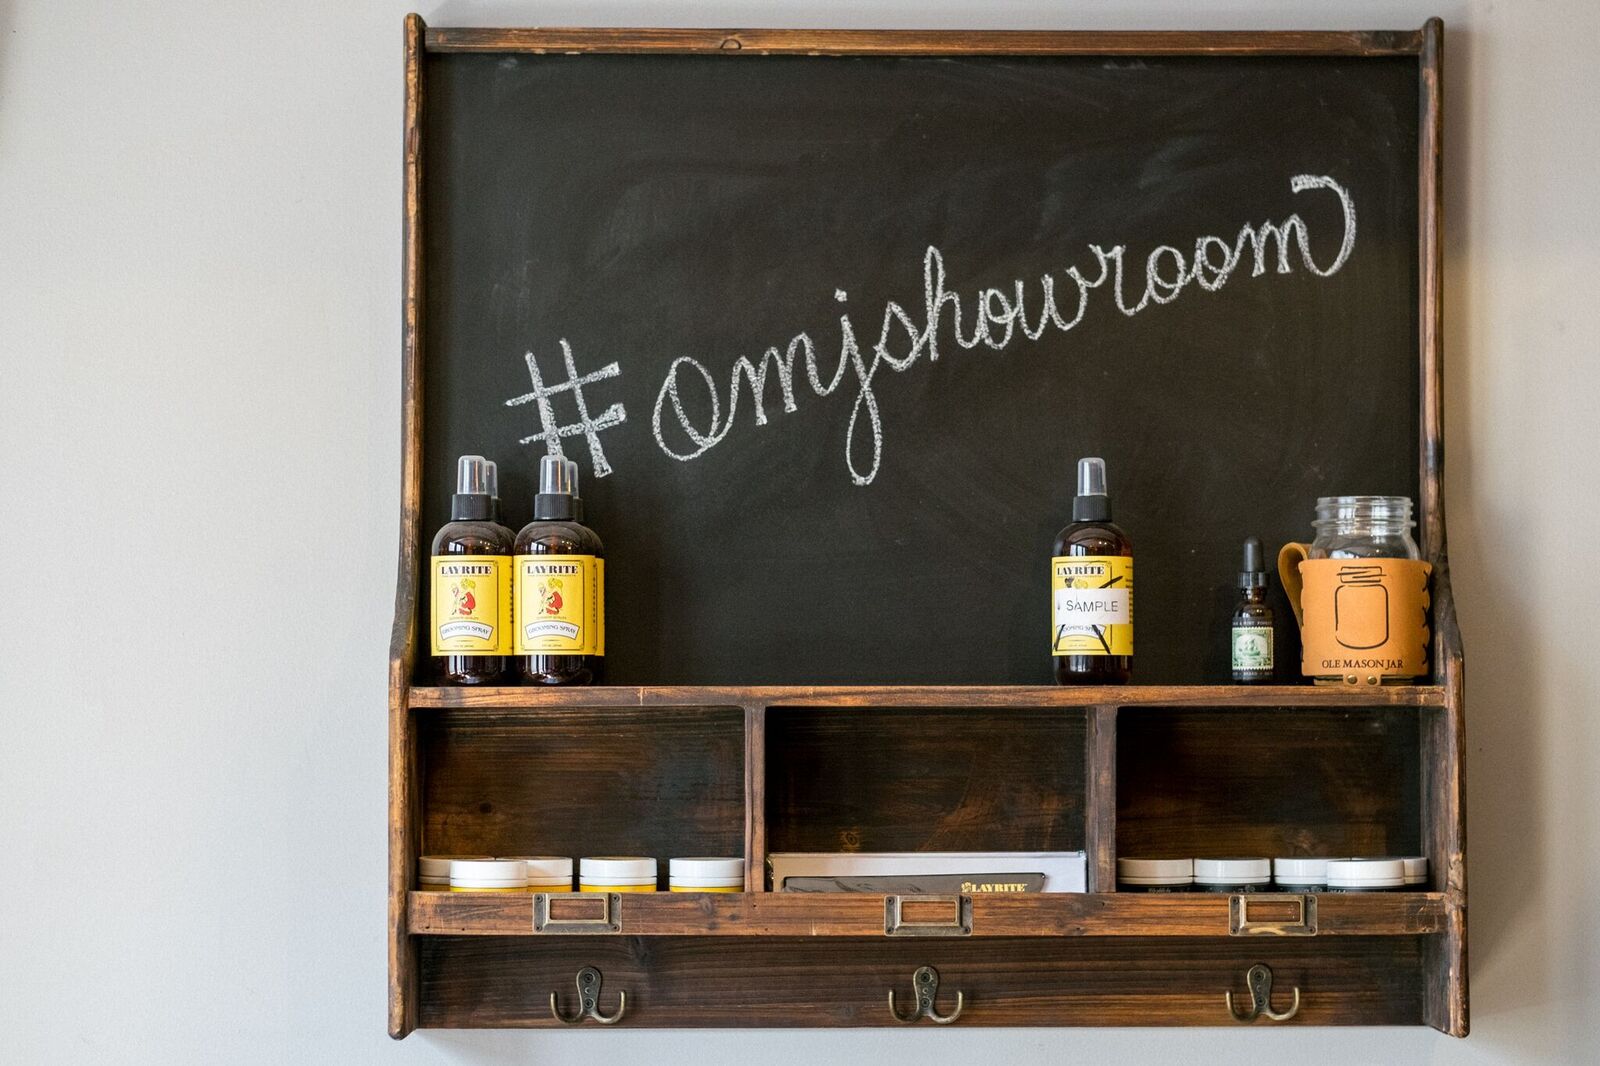 #omjshowroom
LAYRITE
GROOMING SPRAY
LAYRITE
GROOMING SPRAY
LAYRITE
SAMPLE
OLE MASON JAR
LAYRITE